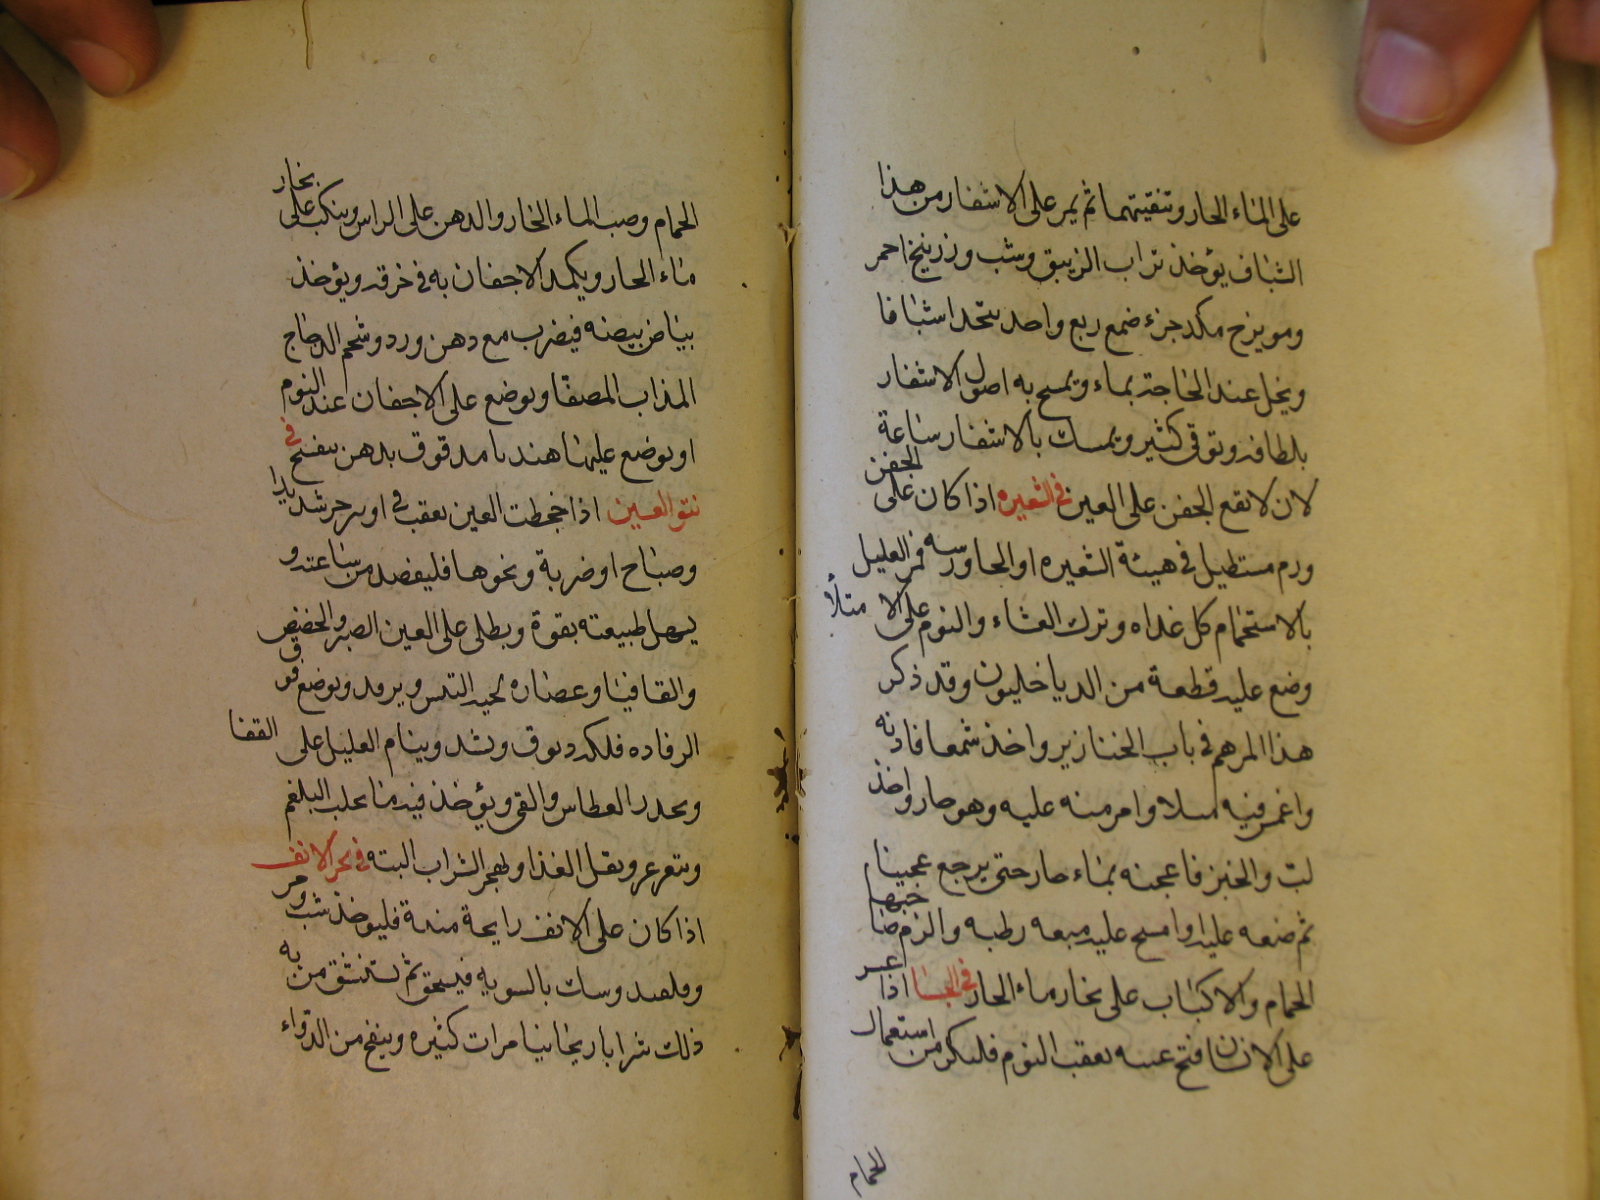 على الماء الحار وتنقيتهما ثم يمر على الاشفار من هذا
الشاف يؤخذ تراب الزيبق وشب وزرنيخ احمر
ومويزج مكد جزء ضمع ربع واحد يتخذ اشيافا
ويحل عند الحاجة بماء وتمسح به اصول الاشفار
بلطافه وتوقى كثير وتمسك بالاشفار ساعة
لان لا تقع الجفن على العين في الشعيره اذا كان على الجفن
ورم مستطيل في هيئة الشعيره او الجاورسه فمر العليل
بالاستحمام كل غداه وترك العشاء والنوم على الا متلأ
وضع عليه قطعة من الدياخليون وقد ذكر
هذا المرهم في باب الخنازير واخذ شمعا فاذبه
واغمس فيه ميلا وامر منه عليه وهو حار واخذ
لب والخبز فاعجنه بماء حار حتى يرجع عجينا
ثم ضعه عليه وامسح عليه ميعه رطبه والزم صاحبها
الحمام والاكباب على بخار ماء الحار في الجسا اذا عسر
على الانسان فتح عينه بعقب النوم فليكثر من استعمال
الحمام
الحمام وصب الماء الحار والدهن على الراس وينكب على بخار
ماء الحار ويكمد الاجفان به في خرقه ويؤخذ
بياض بيضه فيضرب مع دهن ورد وشحم الدجاج
المذاب المصفا ويوضع على الاجفان عند النوم
او يوضع عليها هندبا مدقوق بدهن بنفسج في
نتو العين اذا جحظت العين بعقب قي او زحير شديد
وصياح او ضربة ونحوها فليفصد من ساعته و
يسهل طبيعته بقوة ويطلى على العين الصبر والحضض
والقاقيا وعصاره لحية التيس ويرفد ويوضع فوق
الرفاده فلكه ديوق ويشد وينام العليل على القفا
ويحذر العطاس والقي ويؤخذ فيه ما يحلب البلغم
ويتغرغر ويقل الغذا ويهجر الشراب البته في بخر الانف
اذا كان على الانف رايحة منتنة فليؤخذ شب ومر
وسك بالسويه فيسحق ثم تستنشق من به
ذلك شرابا ريحانيا مرات كثيره وينفخ من الدواء